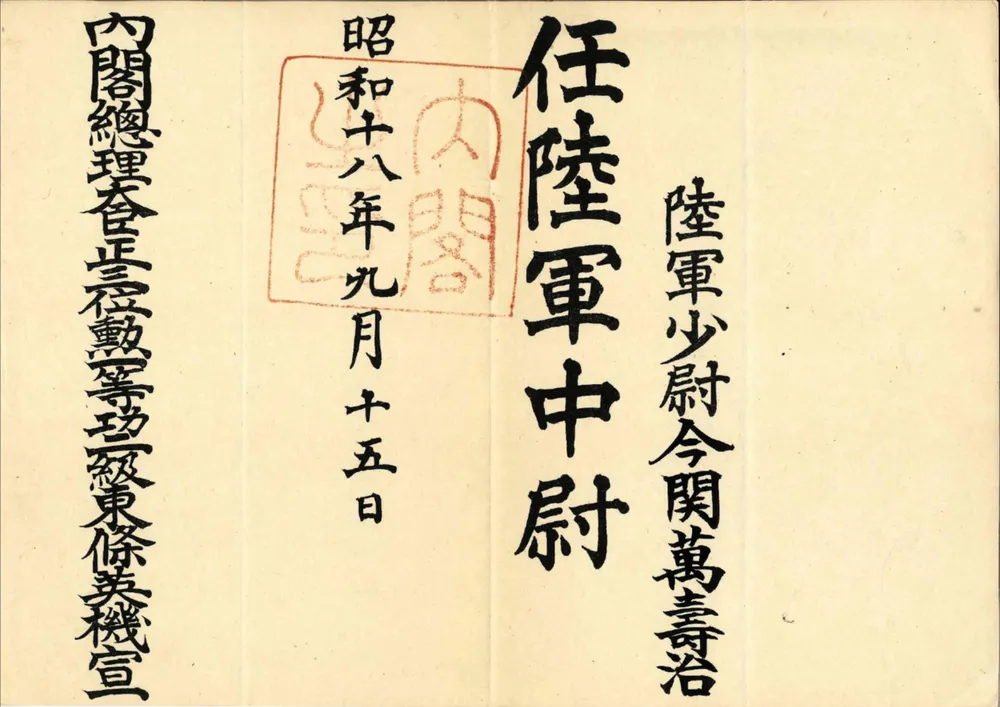 陸軍少尉今関萬壽治
任陸軍中尉
昭和十八年九月十五日
內閣
之印
內閣總理大臣正三位勳一等功二級東條英機宣